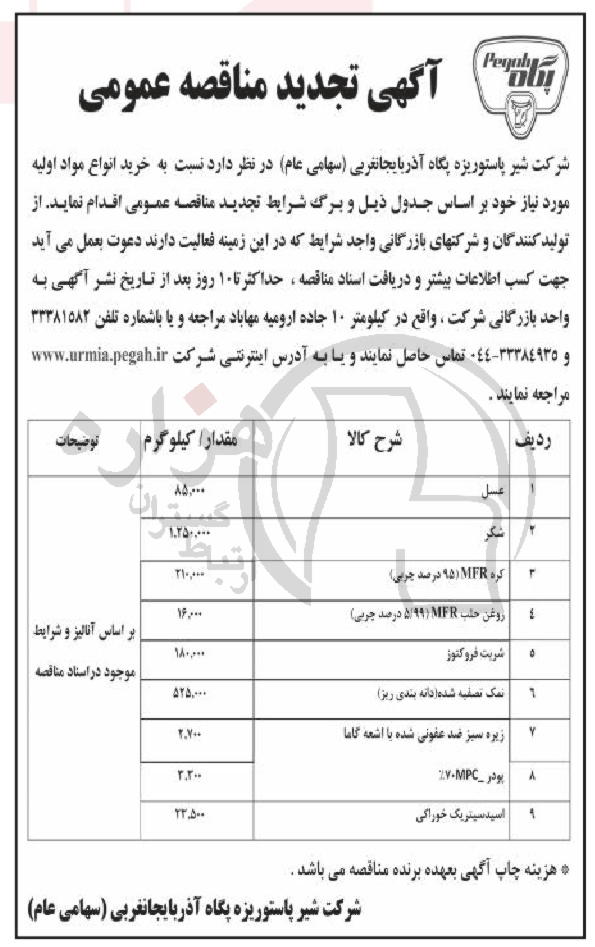 Pegah
پگاه
آگهی تجدید مناقصه عمومی
شرکت شیر پاستوریزه پگاه آذربایجانغربی (سهامی عام) در نظر دارد نسبت به خرید انواع مواد اولیه
مورد نیاز خود بر اساس جدول ذیل و برگ شرایط تجدید مناقصه عمومی اقدام نماید. از
تولیدکنندگان و شرکتهای بازرگانی واجد شرایط که در این زمینه فعالیت دارند دعوت بعمل می آید
جهت کسب اطلاعات بیشتر و دریافت اسناد مناقصه ، حداکثرتا۱۰ روز بعد از تاریخ نشر آگهی به
واحد بازرگانی شرکت ، واقع در کیلومتر ۱۰ جاده ارومیه مهاباد مراجعه و یا باشماره تلفن ۳۳۳۸۱۵۸۲
و ۳۳۳۸۴۹۳۵-۰۴۴ تماس حاصل نمایند و یا به آدرس اینترنتی شرکت www.urmia.pegah.ir
مراجعه نمایند .
ردیف شرح کالا مقدار/ کیلوگرم توضیحات
۱ عسل ۸۵,۰۰۰
۲ شکر ۱,۲۵۰,۰۰۰
۳ کره MFR (۹۵ درصد چربی) ۲۱۰,۰۰۰
۴ روغن حلب MFR (۵/۹۹ درصد چربی) ۱۶,۰۰۰
۵ شربت فروکتوز ۱۸۰,۰۰۰
۶ نمک تصفیه شده(دانه بندی ریز) ۵۲۵,۰۰۰
۷ زیره سبز ضد عفونی شده با اشعه گاما ۲,۷۰۰
۸ پودر _MPC۷۰٪ ۲,۲۰۰
۹ اسیدسیتریک خوراکی ۲۳,۵۰۰
بر اساس آنالیز و شرایط
موجود در اسناد مناقصه
* هزینه چاپ آگهی بعهده برنده مناقصه می باشد .
شرکت شیر پاستوریزه پگاه آذربایجانغربی (سهامی عام)
هزاره
گستران
ارتباط